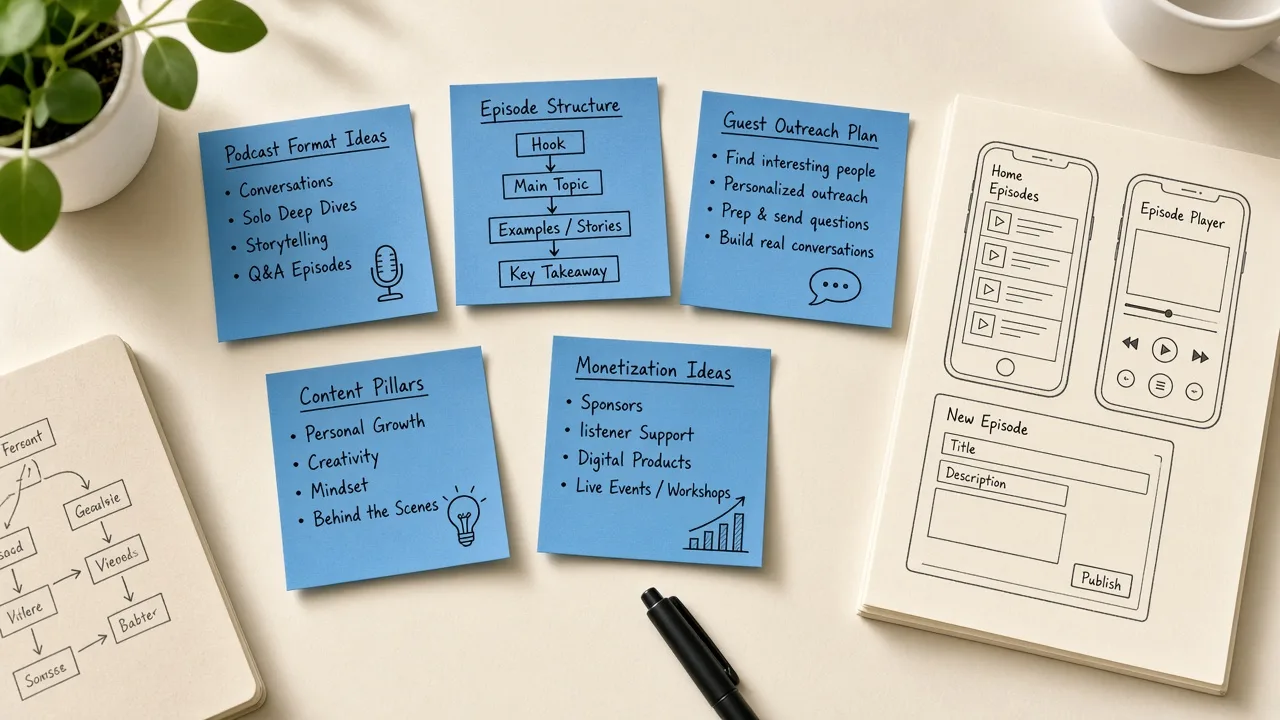 Podcast Format Ideas
• Conversations
• Solo Deep Dives
• Storytelling
• Q&A Episodes
Episode Structure
Hook
Main Topic
Examples / Stories
Key Takeaway
Guest Outreach Plan
• Find interesting people
• Personalized outreach
• Prep & send questions
• Build real conversations
Content Pillars
• Personal Growth
• Creativity
• Mindset
• Behind the Scenes
Monetization Ideas
• Sponsors
• listener Support
• Digital Products
• Live Events / Workshops
Home
Episodes
Episode Player
New Episode
Title
Description
Publish
Fersont
Vieods
Vitlere
Babter
Somsse